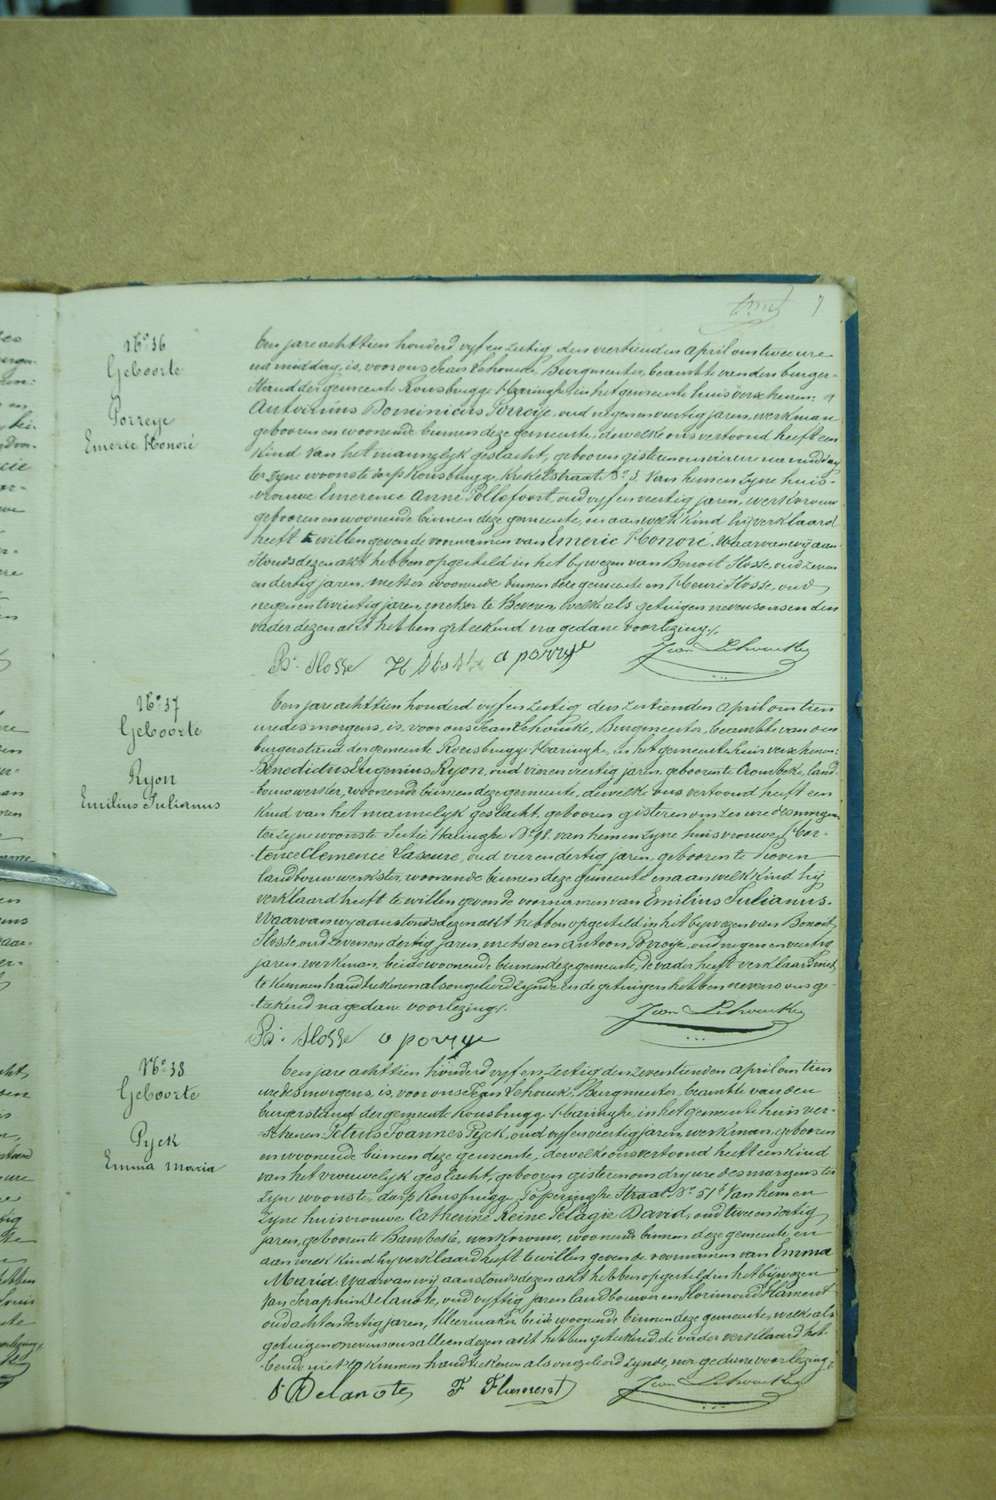 7
No 36
Geboorte
Porreye
Emeric Honoré
Een jare acht tien honderd vyf en zestig den veertienden April om twee ure
na middag, is, voor ons Jean Lehoucke, Burgmeester, beambte van den burger-
stand der gemeente Rousbrugge-Haringhe, in het gemeente huis verschenen:
Antonius Dominicus Porreye, oud negen en veertig jaren, werkman
geboren en woonende binnen deze gemeente, dewelke ons vertoond heeft een
kind van het mannelyk geslacht, geboren gisteren om vier ure na middag
ter zyne woonste dorp Rousbrugge, straat No 3, van hem en zyne huis-
vrouwe Emerence Anne Pollefoort, oud vyf en veertig jaren, werkvrouw
geboren en woonende binnen deze gemeente, en aan welk kind hij verklaard
heeft te willen geven de voornamen van Emeric Honoré. Waarvan wij aan-
stonds dezen akt hebben opgesteld in het bywezen van Benoit Hosse, oud zeven
en dertig jaren, metser woonende binnen deze gemeente en Henri Hosse, oud
negen en twintig jaren, metser te Beveren, welk als getuigen nevens ons en den
vader dezen akt hebben geteekend na gedane voorlezing.
Bt. Hosse H Hosse a porrye Jean Lehoucke
No 37
Geboorte
Ryon
Emilius Julianus
Een jare acht tien honderd vyf en zestig den zestienden April om tien
ure des morgens, is, voor ons Jean Lehoucke, Burgmeester, beambte van den
burgerstand der gemeente Rousbrugge-Haringhe, in het gemeente huis verschenen:
Benedictus Eugenius Ryon, oud vier en veertig jaren, geboren te Crombeke, land-
bouwwerker, woonende binnen deze gemeente, dewelk ons vertoond heeft een
kind van het mannelyk geslacht, geboren gisteren om zes ure des morgens
ter zyne woonste Sectie Haringhe No 98 van hem en zyne huisvrouwe Hor-
tence Clemence Laseure, oud vier en dertig jaren, geboren te Hoven
landbouwwerkster, woonende binnen deze gemeente en aan welk kind hij
verklaard heeft te willen geven de voornamen van Emilius Julianus.
Waarvan wij aanstonds dezen akt hebben opgesteld in het bywezen van Benoit
Hosse, oud zeven en dertig jaren, metser en Antoon Porreye, oud negen en veertig
jaren, werkman, beide woonende binnen deze gemeente, de vader heeft verklaard niet
te kunnen handteekenen als ongeleerd zynde en de getuigen hebben nevens ons ge-
teekend na gedane voorlezing.
Bt. Hosse a porrye Jean Lehoucke
No 38
Geboorte
Pyck
Emma Maria
Een jare acht tien honderd vyf en zestig den zeventienden april om tien
ure des morgens, is, voor ons Jean Lehoucke, Burgmeester, beambte van den
burgerstand der gemeente Rousbrugge-Haringhe, in het gemeente huis ver-
schenen Petrus Joannes Pyck, oud vyf en veertig jaren, werkman, geboren
en woonende binnen deze gemeente, dewelk ons vertoond heeft een kind
van het vrouwelyk geslacht, geboren gisteren om dry ure des morgens ter
zyne woonste, dorp Rousbrugge, Poperinghe straat No 51, van hem en
zyne huisvrouwe Catherine Reine Pelagie David, oud twee en dertig
jaren, geboren te Bambeke, werkvrouw, woonende binnen deze gemeente, en
aan welk kind hy verklaard heeft te willen geven de voornamen van Emma
Maria. Waarvan wij aanstonds dezen akt hebben opgesteld in het bijwezen
van Seraphin Delanote, oud vyftig jaren landbouwer en Florimond Flament
oud acht en dertig jaren, kleermaker beide woonende binnen deze gemeente, welk als
getuigen nevens ons alleen dezen akt hebben geteekend, de vader verklaard heb-
bende niet te kunnen handteekenen als ongeleerd zynde, na gedane voorlezing.
S. Delanote F Flament Jean Lehoucke